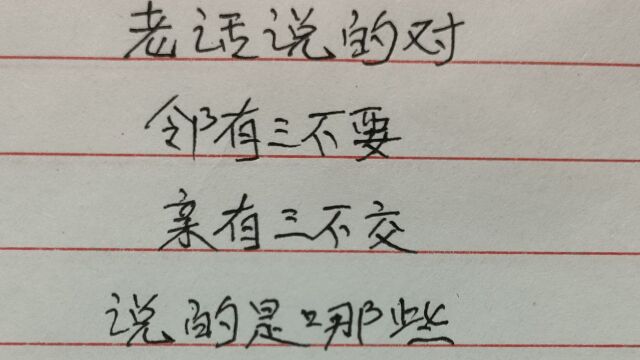 老话说的对
邻有三不要
亲有三不交
说的是哪些